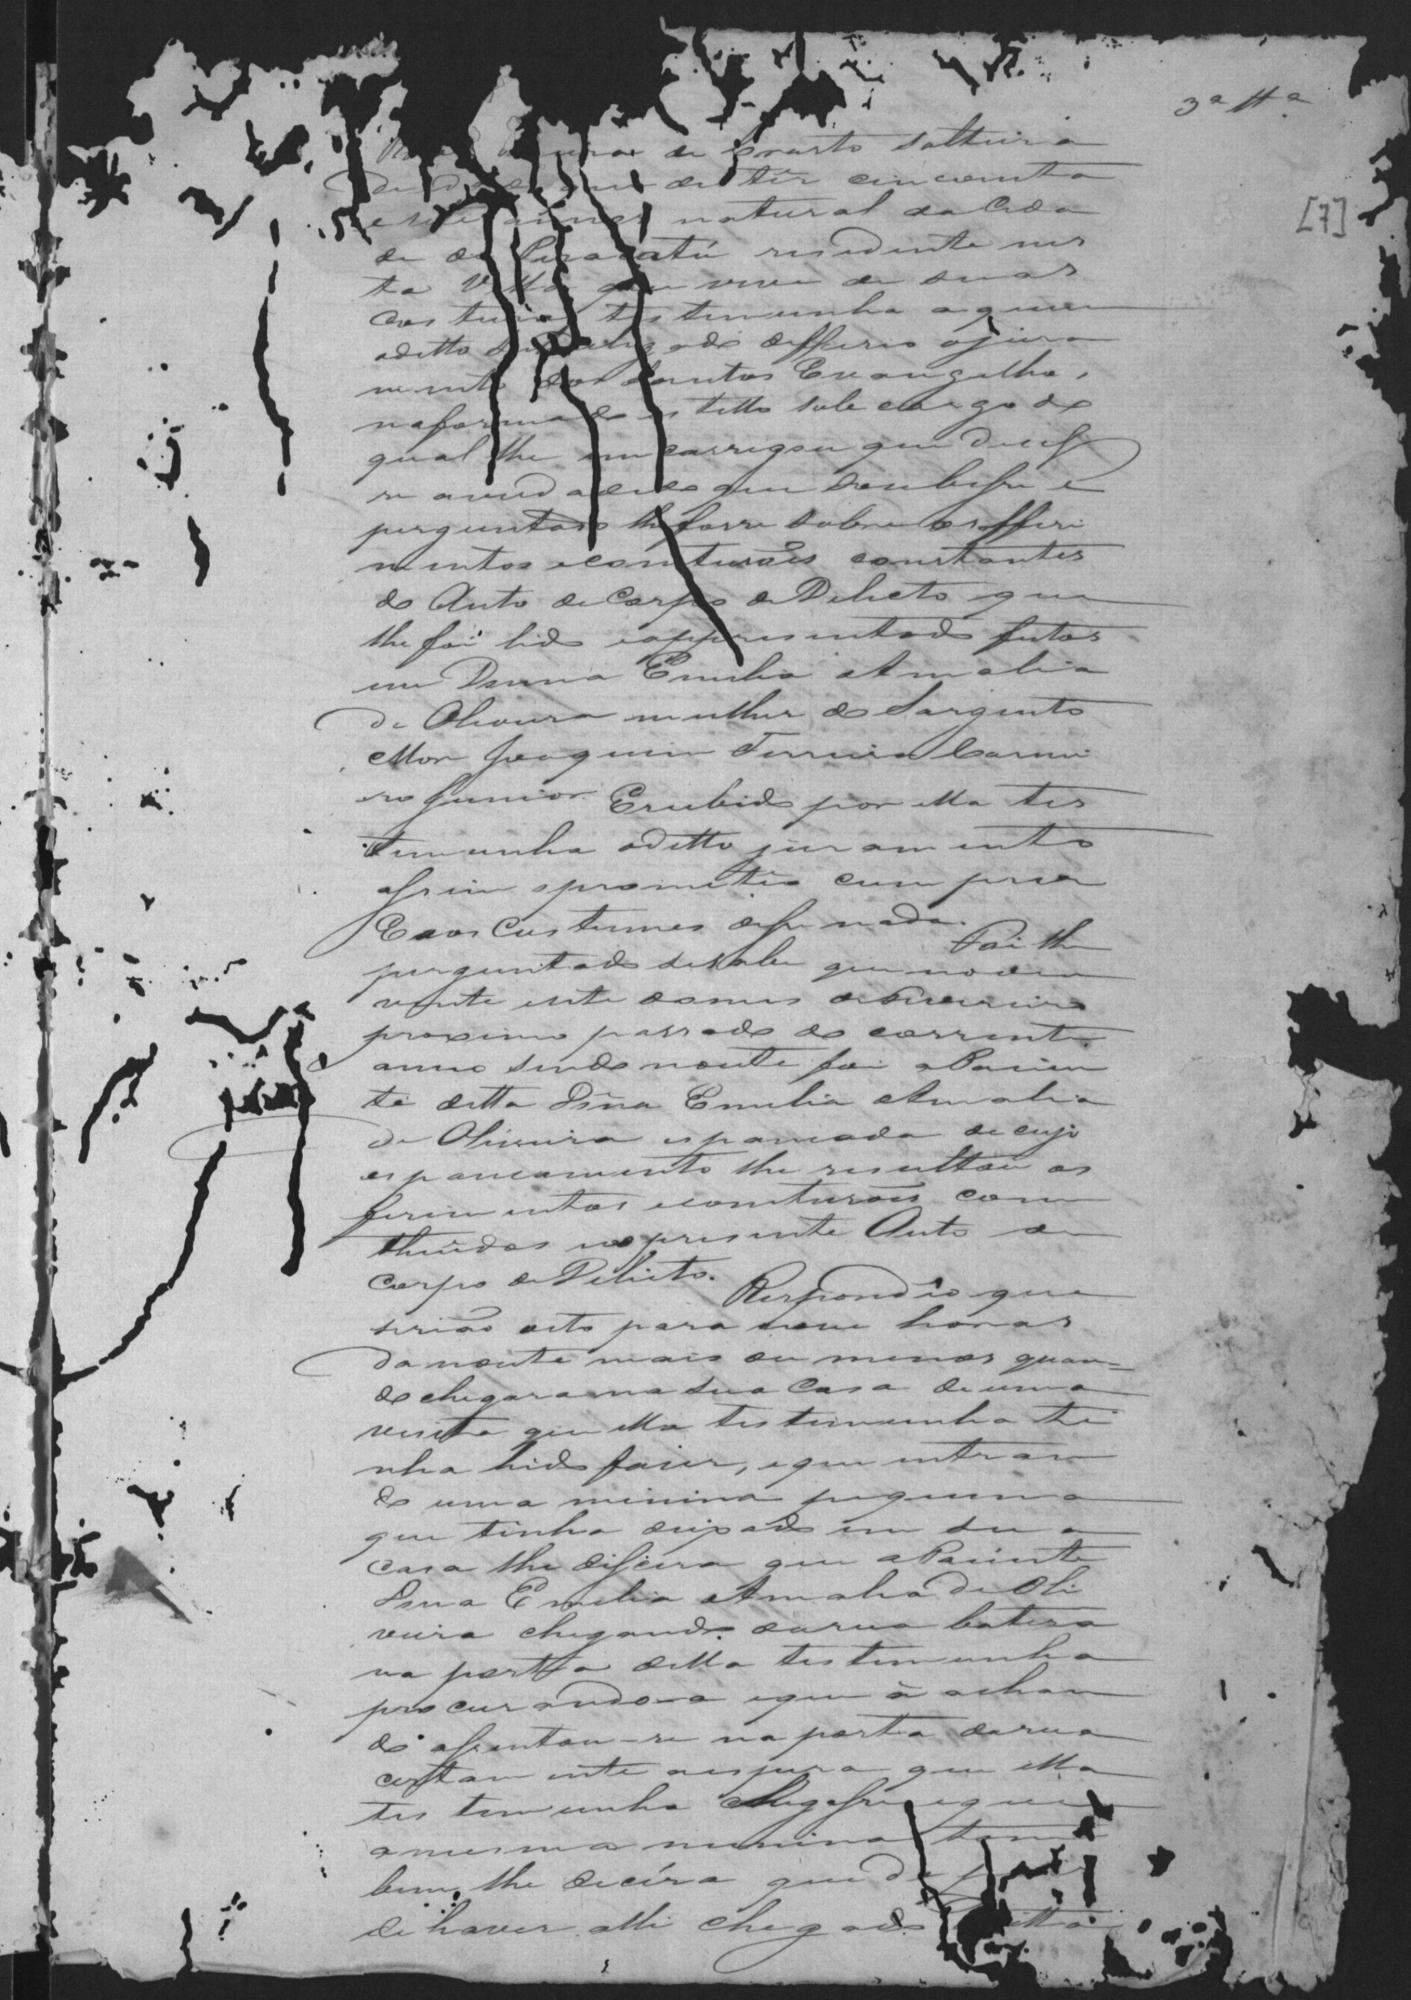 3ª ttª
[7]
de Crasto solteira
de ter cincoenta
e sete annos natural da Cida
de de Paracatú residente nes
ta Villa que vive de suas
costuras testemunha a quem
o ditto Juiz deffirio o jura
mento dos Santos Evangelhos
na forma do estillo sob cargo do
qual lhe emcarregou que dices
se a verdade do que soubesse e
perguntado lhe fosse sobre os fferi
mentos e contusoẽs constantes
do Auto de Corpo de Delicto que
lhe foi lido e appresentado feitos
em Donna Emilia Amalia
de Oliveira mulher do Sargento
Mor Joaquim Ferreira Carnei
ro Junior. E recebido por ella tes
temunha o ditto juramento
assim o prometêo cumprir
E aos Custumes disse nada. Foi lhe
perguntado se sabe que no dia
vinte e sete do mes de Fevereiro
proximo passado do corrente
anno sendo noute foi a Pacien
te ditta Dona Emilia Amalia
de Oliveira espancada de cujo
espancamento lhe resultou os
ferimentos e contusoẽs con
theudos no presente Auto de
Corpo de Delicto. Respondêo que
serião oito para nove horas
da noute mais ou menos quan=
do chegara na sua casa de uma
visita que ella testemunha ti
nha hido fazer, e que entran
do uma minina pequena
que tinha deixado em sua
casa lhe disséra que a Paciente
Dona Emilia Amalia de Oli
veira chegando da rua batera
na porta della testemunha
procurando-a e que não a achan
do assentou-se na porta da rua
certamente a espera que ella
testemunha chegasse e que
a mesma minina tam
bem lhe dicéra que de pois
de haver alli chegado a ditta